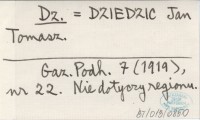 Dz. = DZIEDZIC Jan
Tomasz.
Gaz. Podh. 7 (1919),
nr 22. Nie dotyczy regionu.